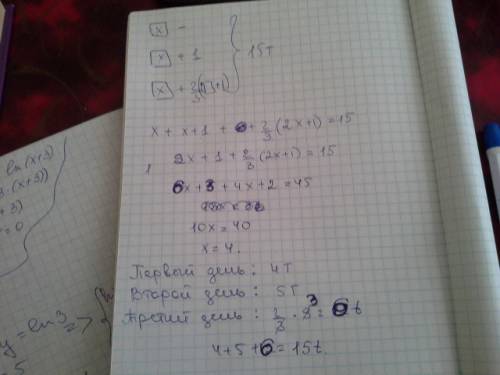 x -
x + 1
x + 2/3(2x+1)
15т
x + x+1 + 2/3(2x+1) = 15
2x + 1 + 2/3(2x+1) = 15
6x + 3 + 4x + 2 = 45
10x = 40
x = 4.
Первый день: 4т
Второй день: 5т
Третий день: 2/3 · 9 = 6t
4+5+6 = 15t.
ln(x+3)
(x+3))
+ 3)
= 0
y = ln 3 =>